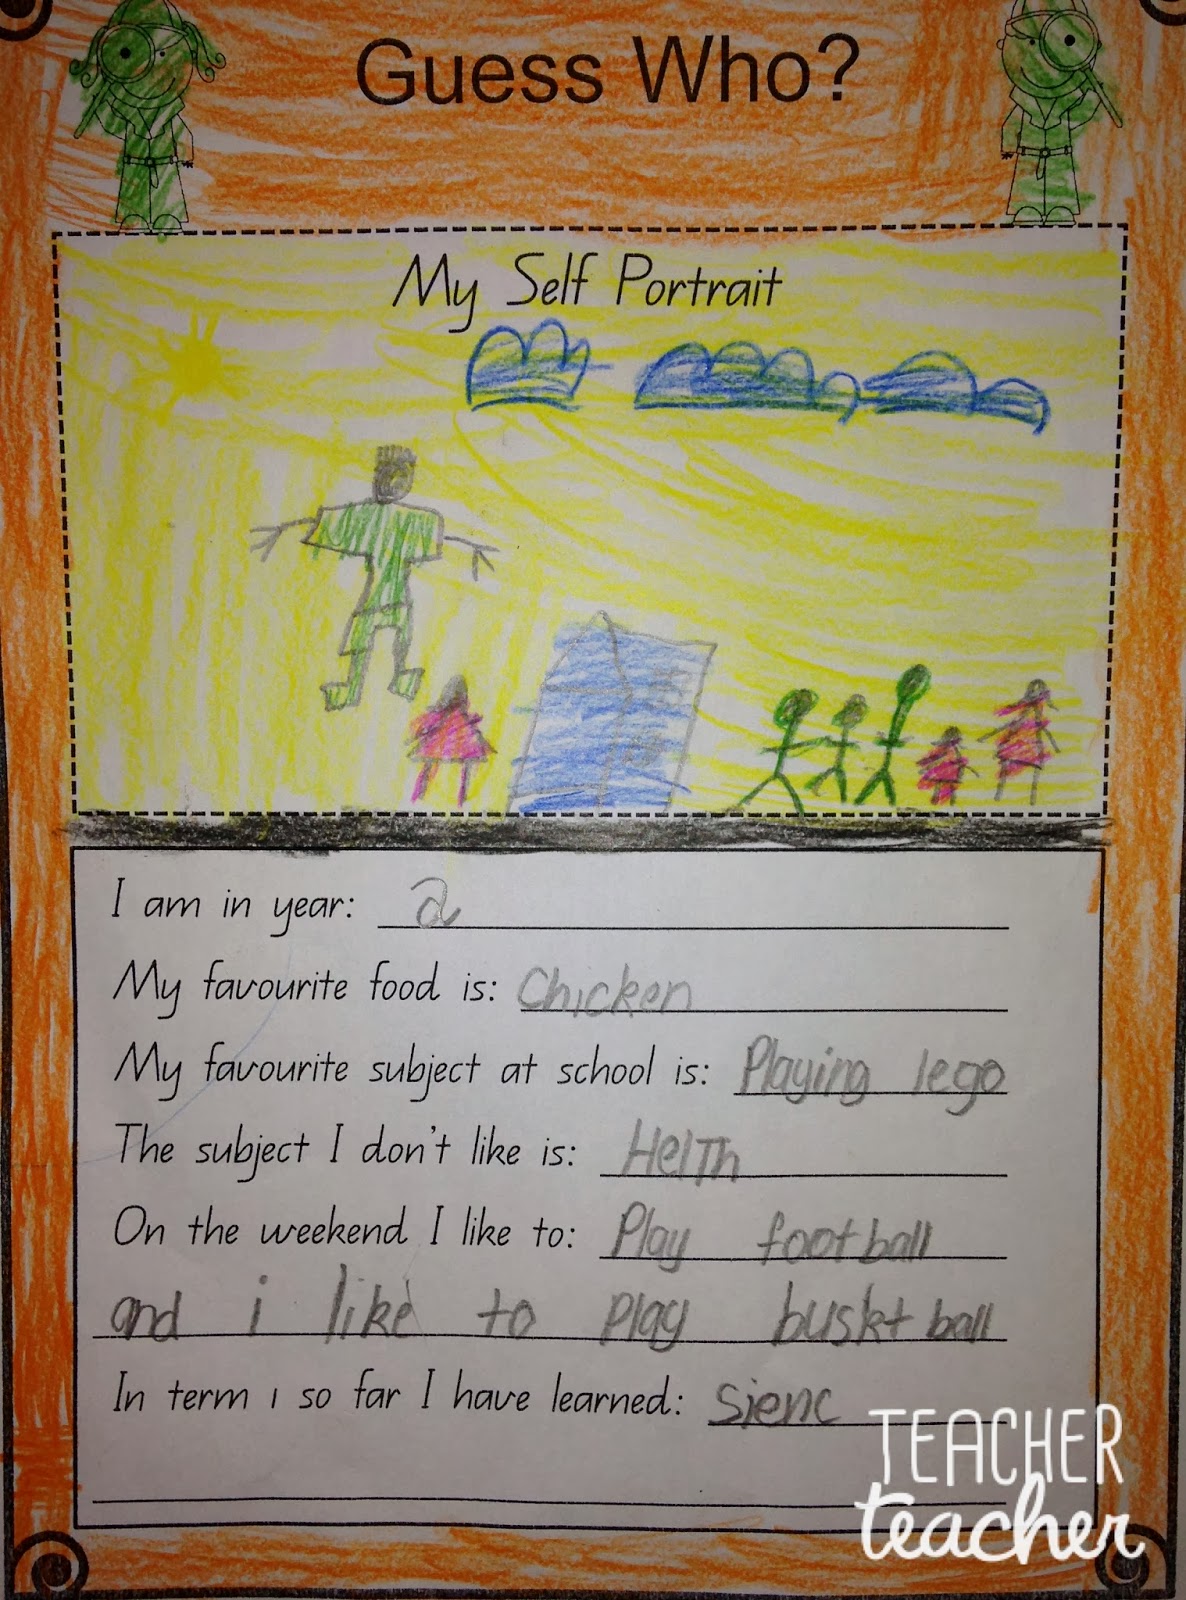 Guess Who?
My Self Portrait
I am in year: 2
My favourite food is: Chicken
My favourite subject at school is: Playing lego
The subject I don't like is: HelTh
On the weekend I like to: Play football
and i like to Play busktball
In term 1 so far I have learned: Sienc
TEACHER
teacher